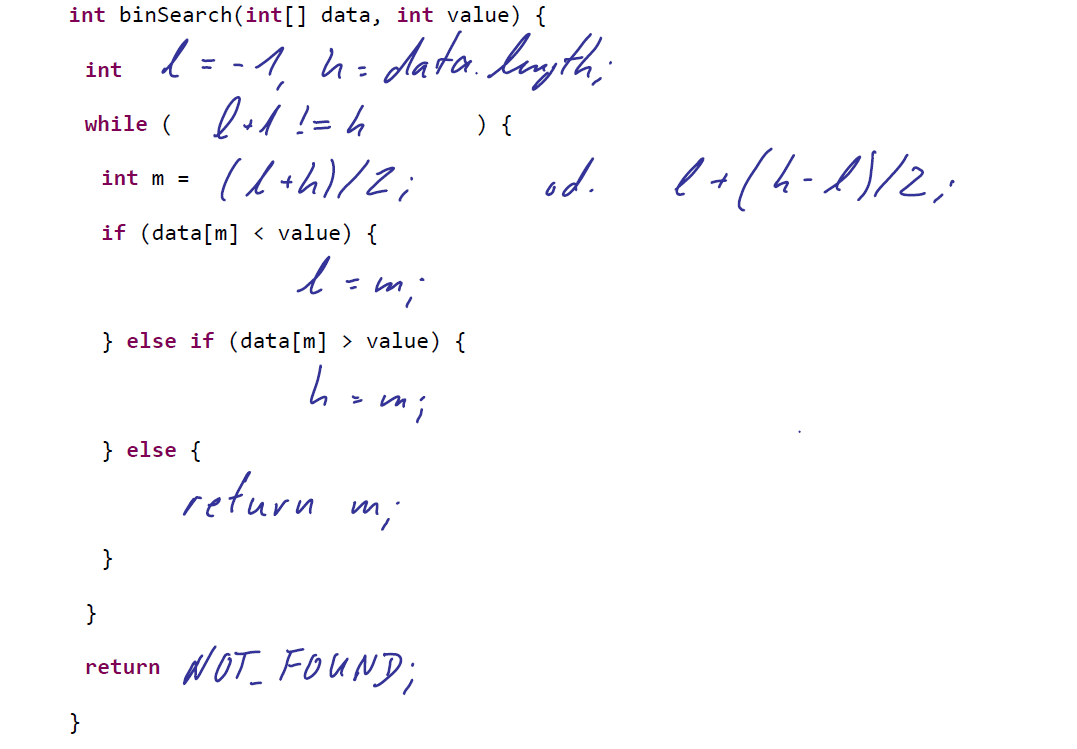 int binSearch(int[] data, int value) {
int l = -1, h = data.length;
while ( l+1 != h ) {
int m = (l+h)/2; od. l+(h-l)/2;
if (data[m] < value) {
l = m;
} else if (data[m] > value) {
h = m;
} else {
return m;
}
}
return NOT_FOUND;
}